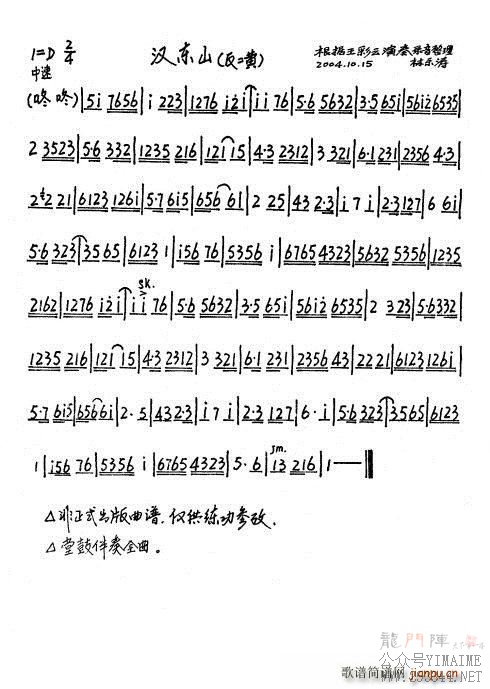 1=D 2/4 汉东山(反二黄) 根据王彩云演奏录音整理
中速 2004.10.15 林乐涛
(咚 咚)|5i 7656|i 223|1276 i2i|i i 76|5·6 5632|3·5 65i|56i2 6535|
2 3523|5·6 332|1235 216|121 15|4·3 2312|3 321|6·1 231|2356 4·3|
6123 126i|5·7 6i5|656 6i|2 25|43 2·3|i 7 i|2·3 127|6 6i|
5·6 323|35 65|6123 1|i56 76|5356 i|6765 4323|5632 5356|1235
2162|1276 i2i|i i 76|5·6 5632|3·5 65i|56i2 6535|2 323|5·6332|
1235 216|121 15|4·3 2312|3 321|6·1 231|2356 43|22 21|6123 126i|
5·7 6i5|656 6i|2·5|43 2·3|i 7 i|2·3 127|6·i|5·6 323|35 65|6123
1|i56 76|5356 i|6765 4323|5·6|i3 216|1——‖
△非正式出版曲谱,仅供练功参改.
△堂鼓伴奏全曲。
龍門陣
公众号YIMAIME
歌谱简谱网 jianpu.cn